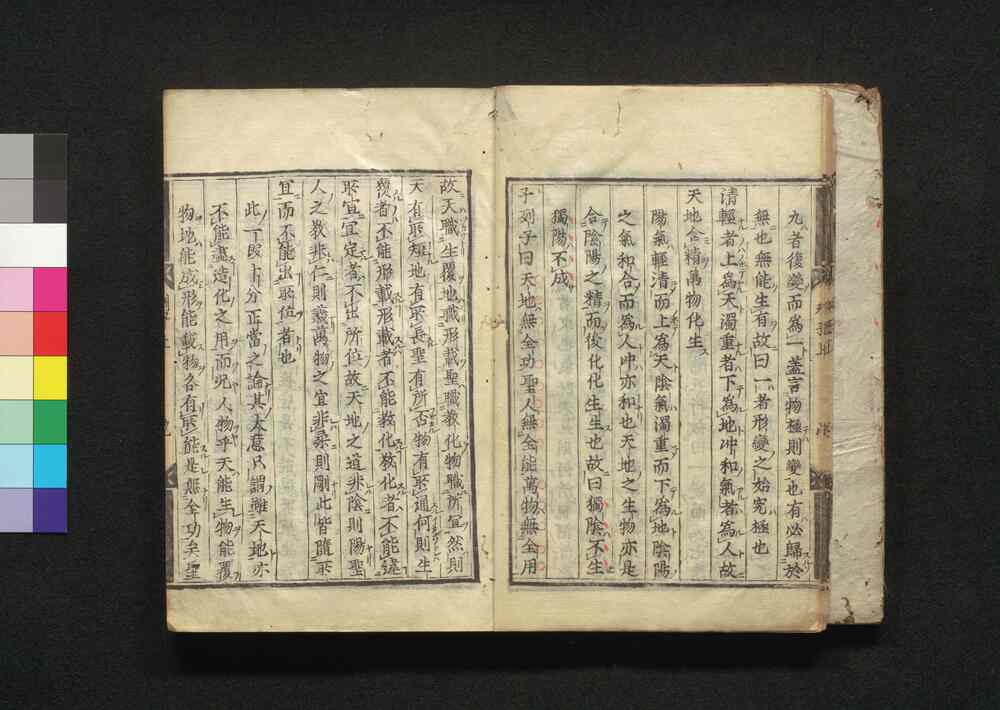 九者後變而為一蓋言物極則變也有必歸於
無也無能生有故曰一者形變之始究極也
清輕者上為天濁重者下為地冲和氣者為人故
天地含精萬物化生
陽氣輕清而上為天陰氣濁重而下為地陰陽
之氣和合而為人冲亦和也天地之生物亦是
合陰陽之精而後化化生生也故曰獨陰不生
獨陽不成
子列子曰天地無全功聖人無全能萬物無全用
故天職生覆地職形載聖職教化物職所宜然則
天有所短地有所長聖有所否物有所通何則生
覆者不能形載形載者不能教化教化者不能違
所宜宜定者不出所位故天地之道非陰則陽聖
人之教非仁則義萬物之宜非柔則剛此皆隨所
宜而不能出所位者也
此一段十分正當之論其大意只謂雖天地亦
不能盡造化之用而况人物乎天能生物能覆
物地能成形能載物各有所能是無全功矣聖